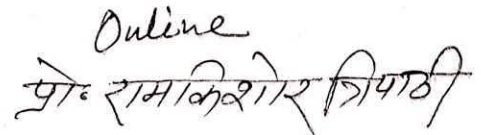 Online
प्रो॰ रामकिशोर त्रिपाठी